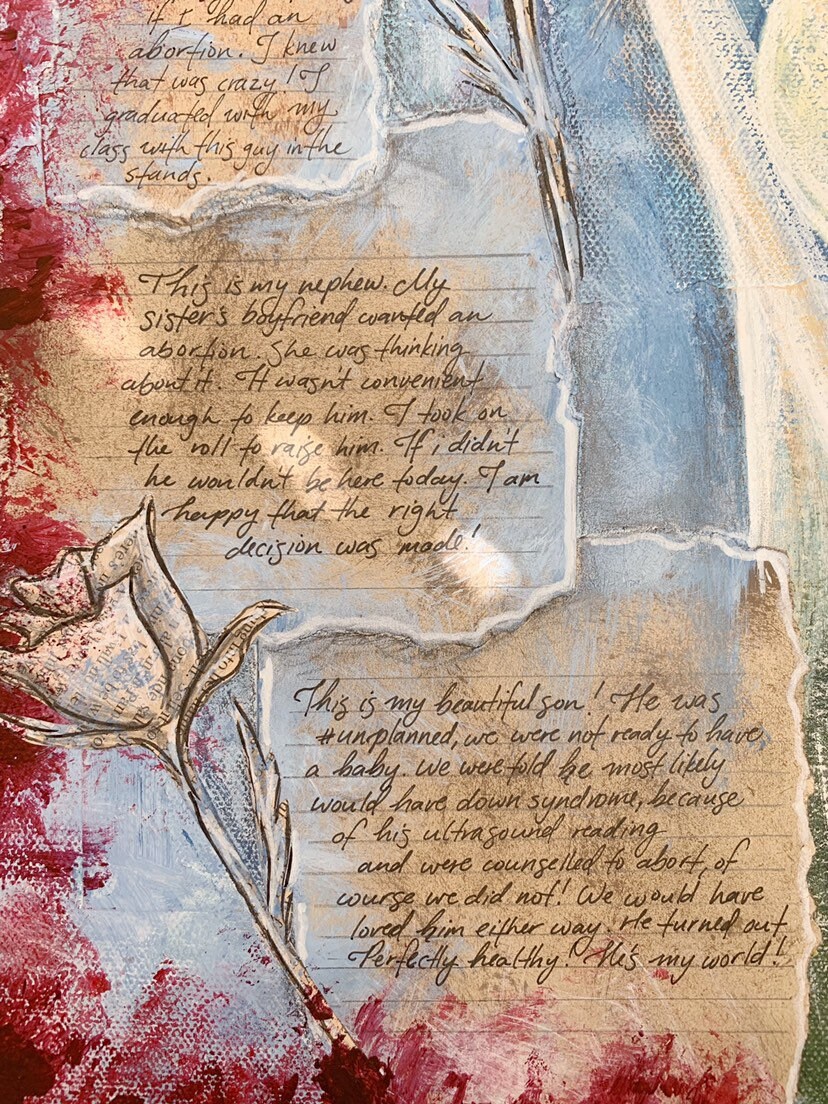 if I had an
abortion. I knew
that was crazy! I
graduated with my
class with this guy in the
stands.
This is my nephew. My
sister's boyfriend wanted an
abortion. She was thinking
about it. It wasn't convenient
enough to keep him. I took on
the roll to raise him. If i didn't
he wouldn't be here today. I am
happy that the right
decision was made!
This is my beautiful son! He was
#unplanned, we were not ready to have
a baby. We were told he most likely
would have down syndrome, because
of his ultrasound reading
and were counselled to abort, of
course we did not! We would have
loved him either way. He turned out
Perfectly healthy! He's my world!